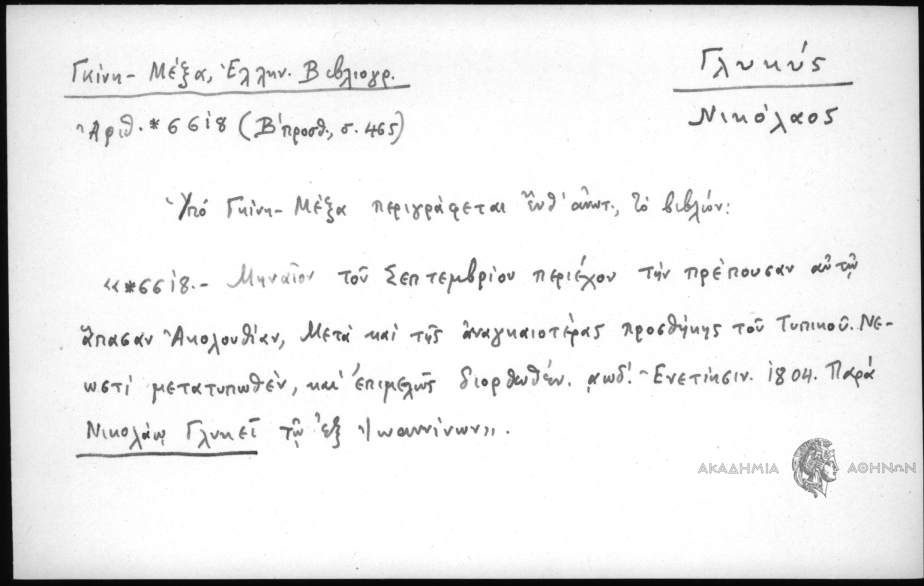 Γκίνη - Μέξα, Ἑλλην. Βιβλιογρ.
Γλυκύς
Νικόλαος
Ἀριθ. *6618 (Β' προσθ., σ. 465)
Ὑπό Γκίνη - Μέξα περιγράφεται ἔνθ' ἀνωτ., τό βιβλίον:
«*6618.- Μηναῖον τοῦ Σεπτεμβρίου περιέχον τήν πρέπουσαν αὐτῷ
ἅπασαν Ἀκολουθίαν, Μετά καί τῆς ἀναγκαιοτέρας προσθήκης τοῦ Τυπικοῦ. Νε-
ωστί μετατυπωθέν, καί ἐπιμελῶς διορθωθέν. ͵αωδ'. Ἐνετίῃσιν. 1804. Παρά
Νικολάῳ Γλυκεῖ τῷ ἐξ Ἰωαννίνων».
ΑΚΑΔΗΜΙΑ ΑΘΗΝΩΝ